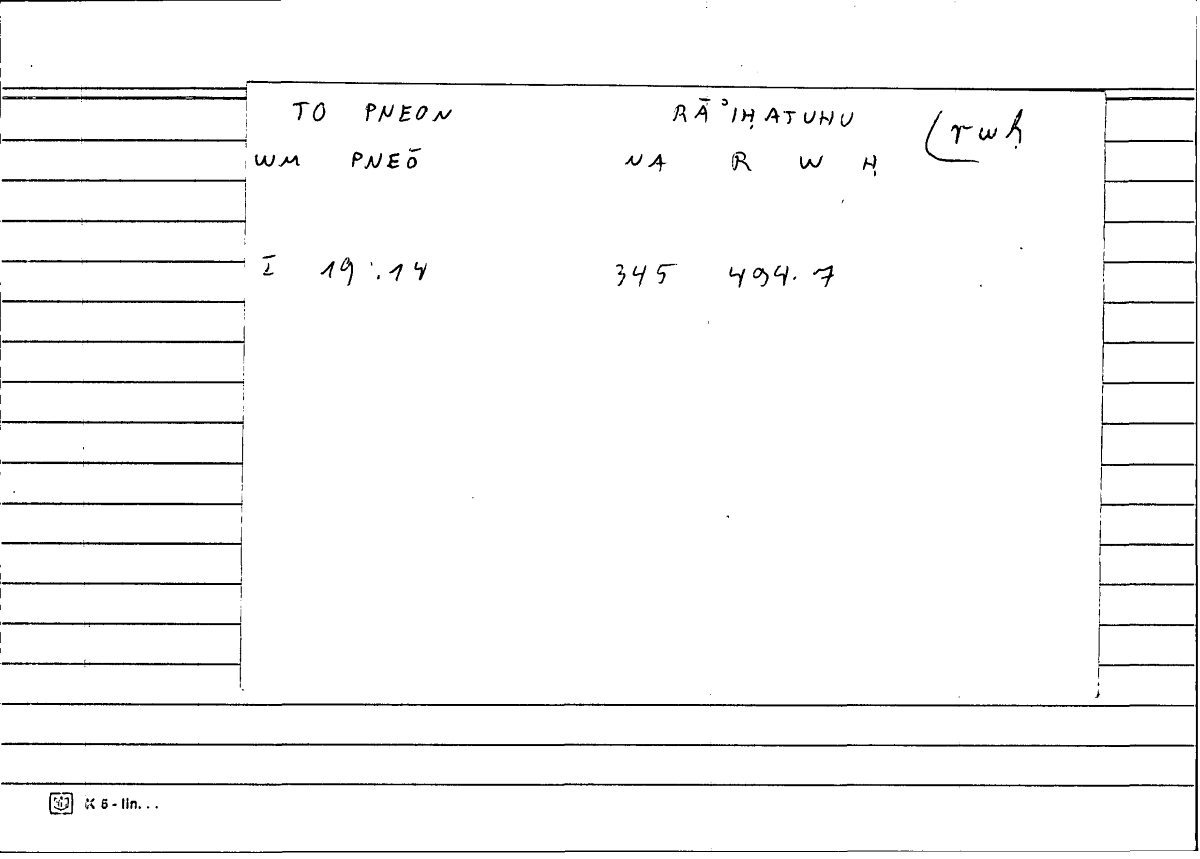 TO PNEON RĀʾIḤATUHU (rwḥ
WM PNEŌ NA R W Ḥ
I 19 :.14 345 494.7
K 5 - lin...